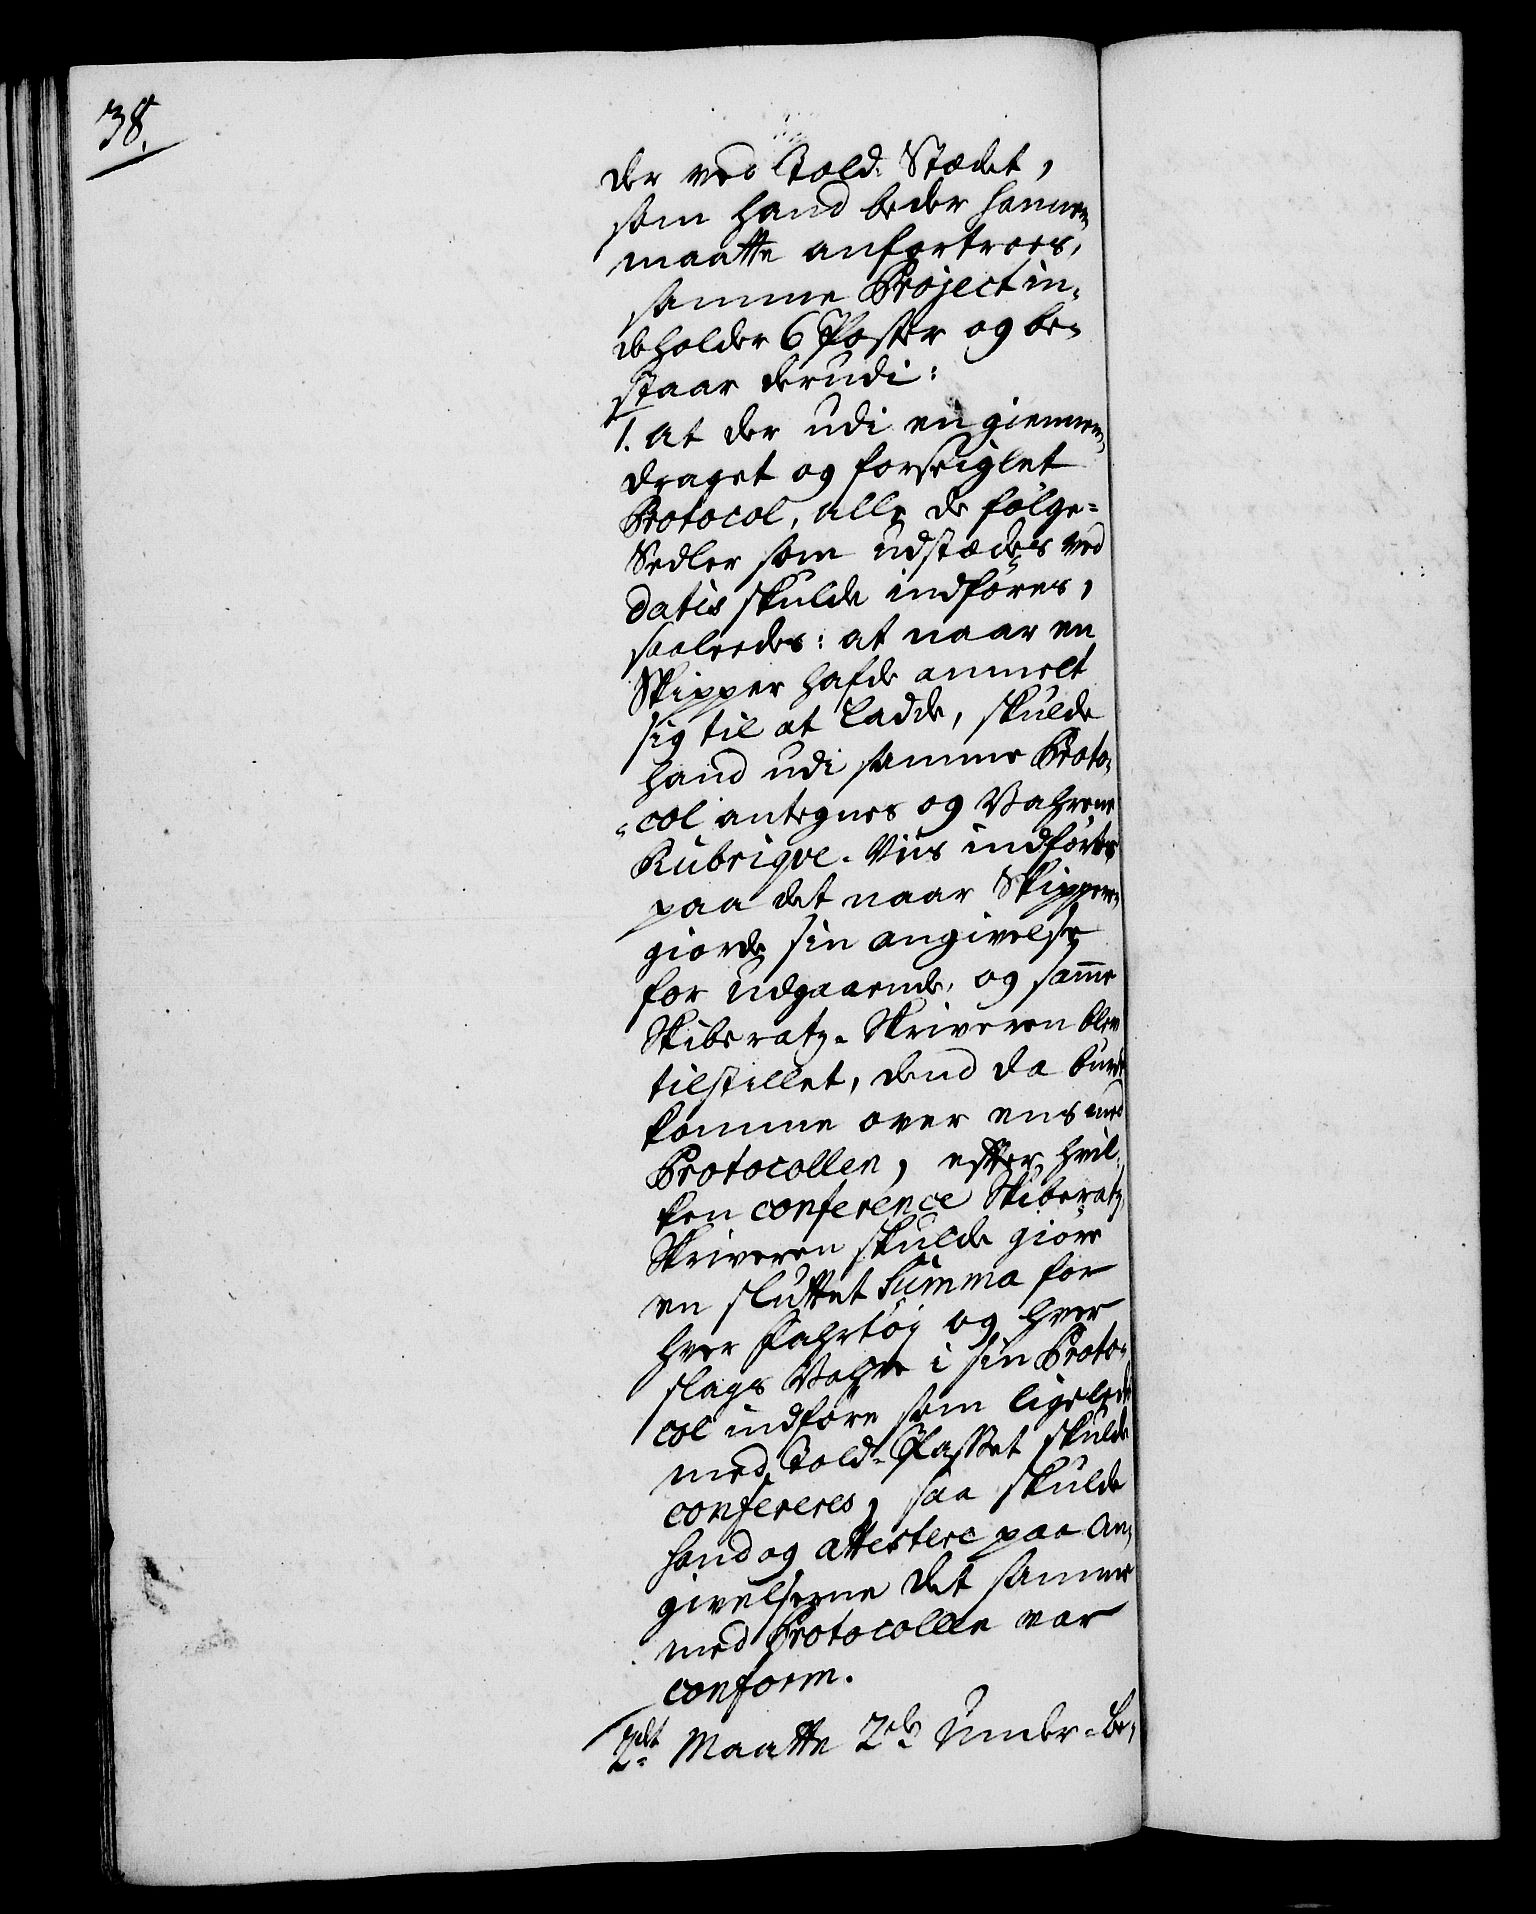 38.
der ved Told-Stædet,
som hand beder hannem
maatte anfortroes,
samme Project in-
deholder 6 Poster og be-
staar derudi:
1. at der udi en giennem-
draget og forseiglet
Protocol, alle de følge-
Sedler som udstædes ved
datis skulde indføres,
saaledes: at naar en
Skipper hafde anmelt
sig til at Ladde, skulde
hand udi samme Proto-
-col antegnes og Vahrene
Rubriqve-Viis indføres
paa det naar Skipperen
giorde sin angivelse
for udgaaende, og samme
Skiberatz-Skriveren blev
tilstillet, dend da burde
komme over ens med
Protocollen, efter hvil-
ken conference Skiberatz
Skriveren skulde giøre
en sluttet Summa for
hver Fahrtøj og hver
slags Vahre i sin Proto-
col indføre som ligeledes
med Told-Passet skulde
confereres, saa skulde
hand og attestere paa An-
givelserne det samme
med Protocollen var
conform.
2det Maatte 2de Under-Be-